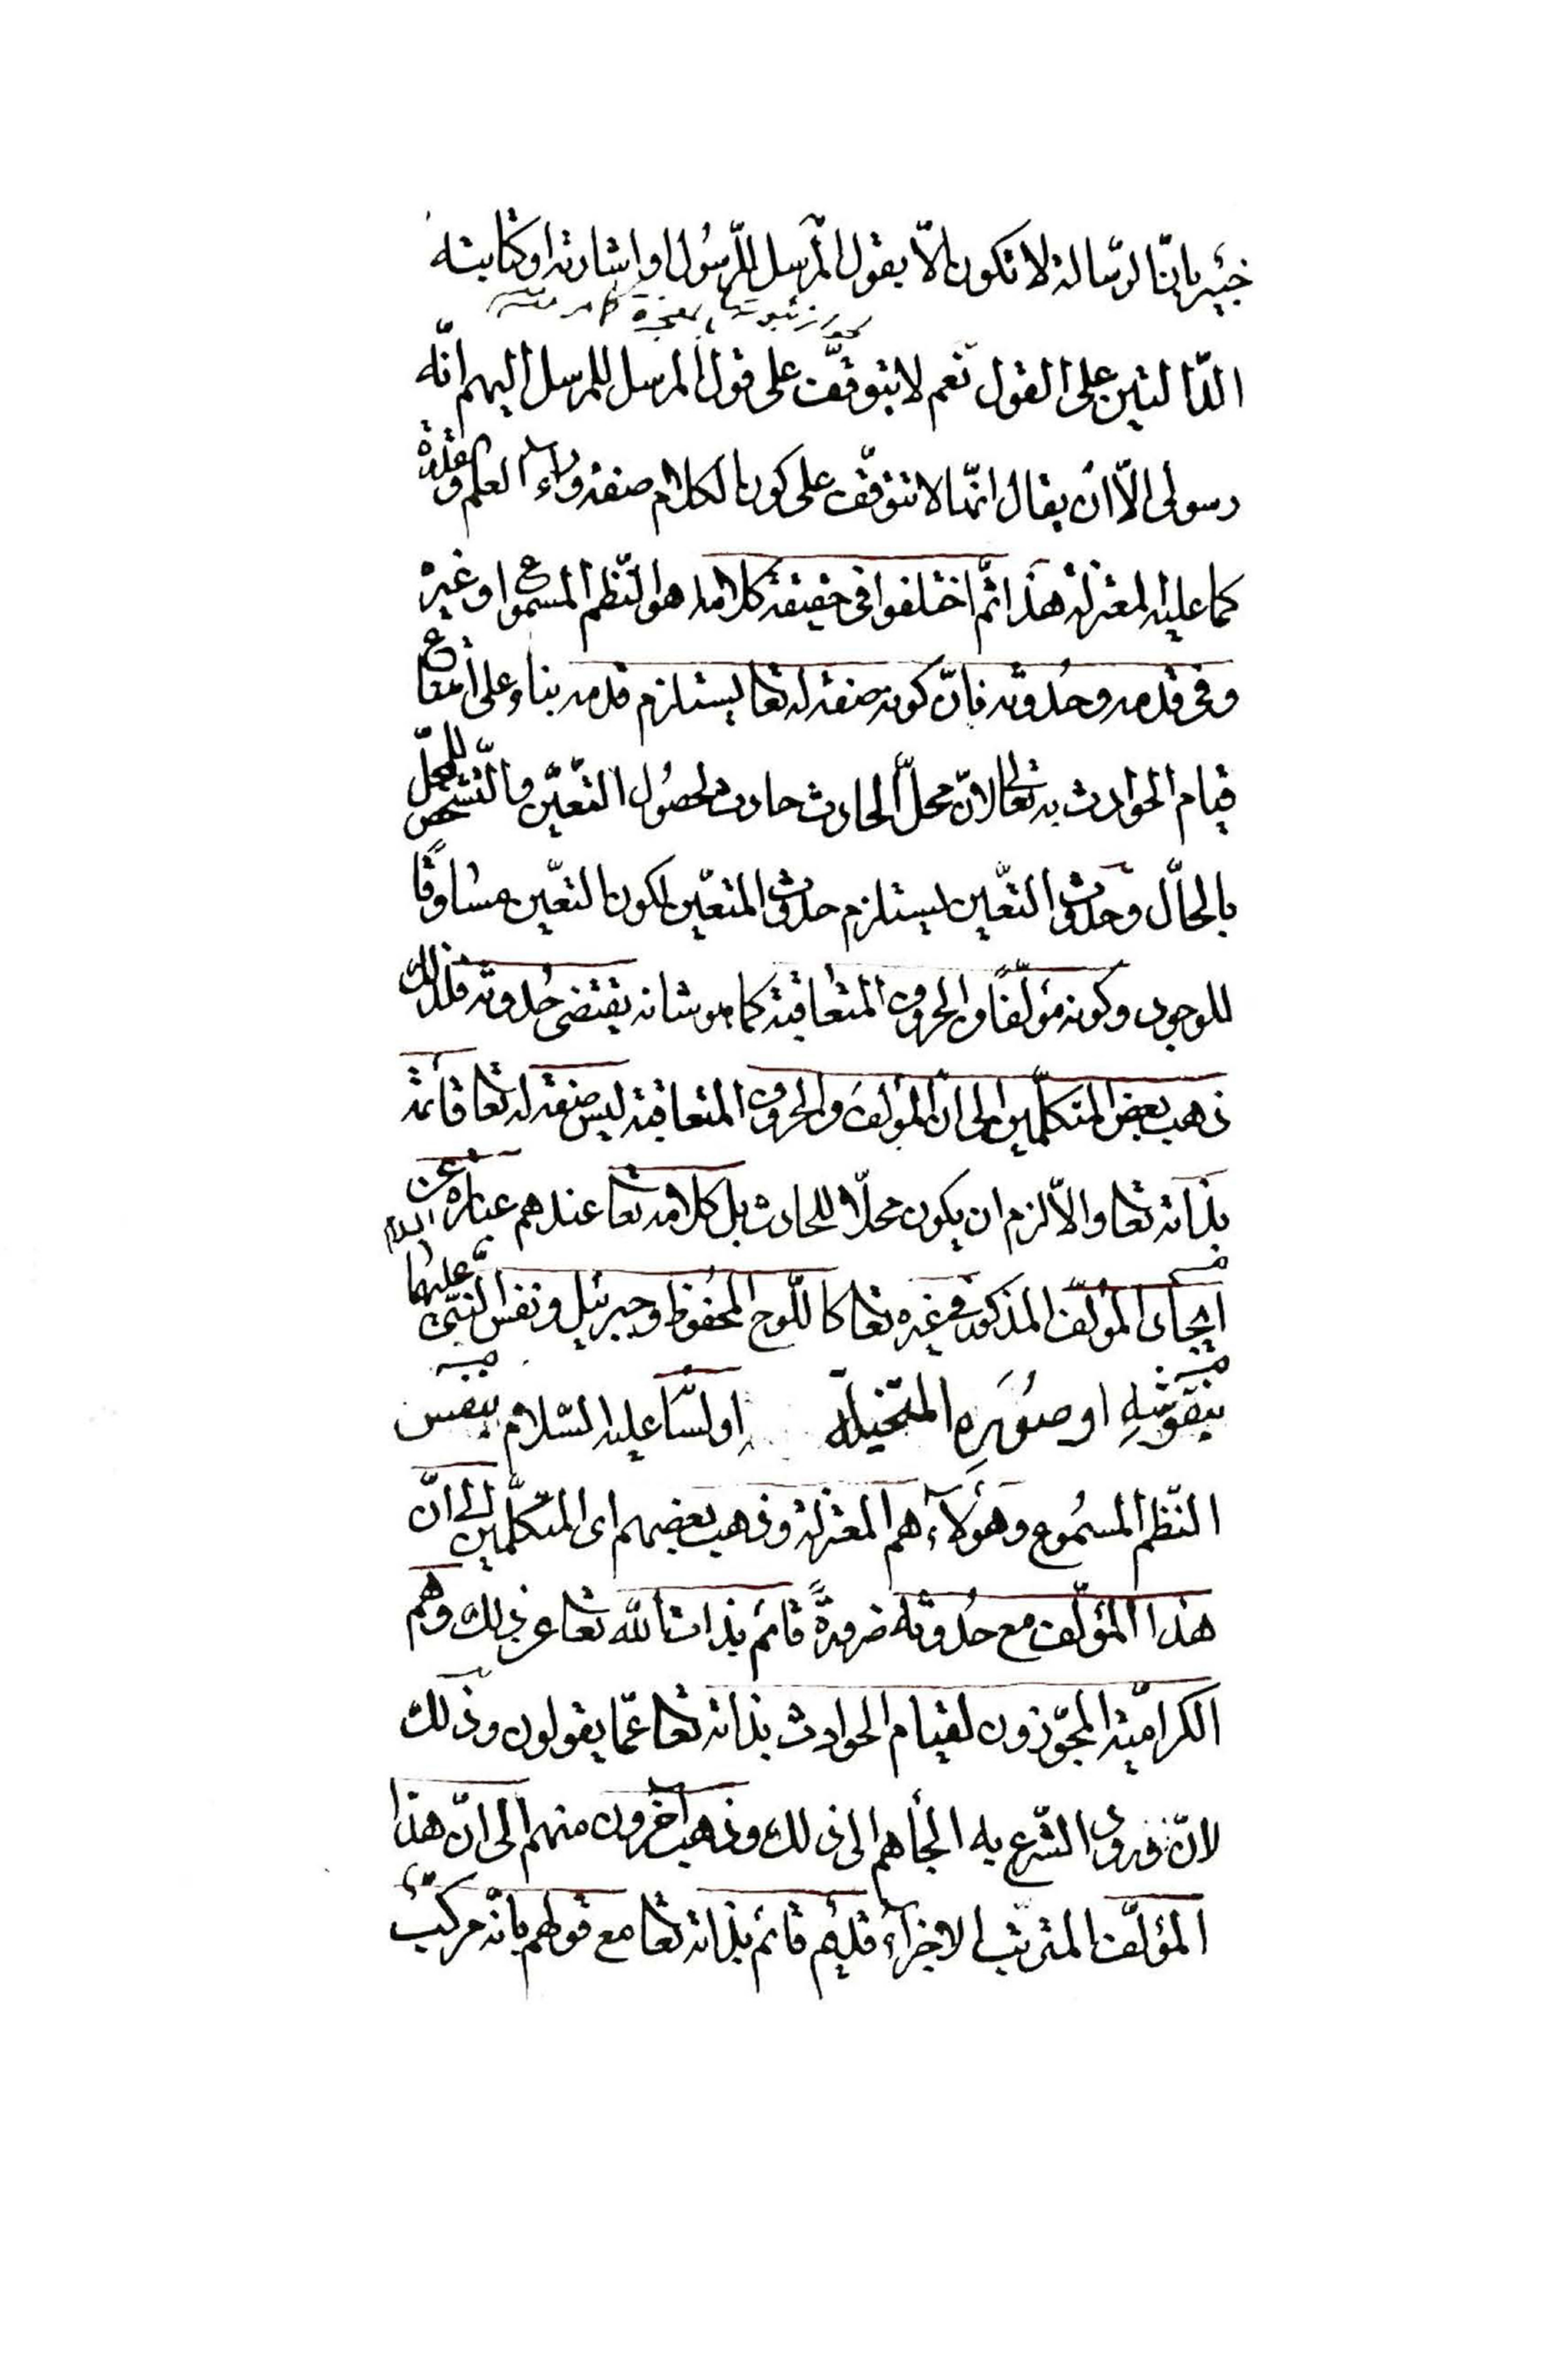 خبير بانّ الرّسالة لا تكون الّا بقول المرسل للرّسُول او اشارته او كتابته
الدّالتين على القول نعم لا يتوقّف على قول المرسل للمرسل اليهم انّه
رسولى الّا ان يقال انّها لا تتوقّف على كون الكلام صفة وراء العلم والقدرة
كما عليه المعتزلة هذا ثمّ اختلفوا فى حقيقة كلامه اهو النّظم المسموع او غيره
وفى قدمه وحُدوثه فانّ كونه صفة له تعا يستلزم قدمه بناء على امتناع
قيام الحوادث به تعالى لانّ محلّ الحادث حادث لحصُول التّعيّن والتّشخّص للمحلّ
بالحالّ وحدوث التعّين يستلزم حدوث المتعّين لكون التعّين مساوقًا
للوجود وكونه مؤلّفًا من الحروف المتعاقبة كما هو شانه يقتضى حُدوثه فلذلك
ذهب بعض المتكلّمين الى انّ المؤلف من الحروف المتعاقبة ليس صفة له تعا قائمة
بذاته تعا والّا لزم ان يكون محلّا للحادث بل كلامه تعا عندهم عبارة عن
ايجاد المؤلّف المذكور فى غيره تعا كاللّوح المحفوظ وجبرئيل ونفس النّبىّ عليهما السلام
بنقوشهِ او صُوَرِهِ المتخيلة او لسَانه عليه السّلام بنفس
النّظم المسمُوع وهؤلآء هم المعتزلة وذهب بعضهم اى المتكلّمين الى انّ
هذا المؤلّف مع حُدوثه ضرورةً قائم بذات الله تعا عن ذلك وهم
الكراميّة المجوّزون لقيام الحوادث بذاته تعا عمّا يقولون وذلك
لانّ ورود الشّرع به الجأهم الى ذلك وذهب آخرون منهم الى انّ هذا
المؤلّف المترتّب الاجزآء قديم قائم بذاته تعا مع قولهم بانّه مركّب